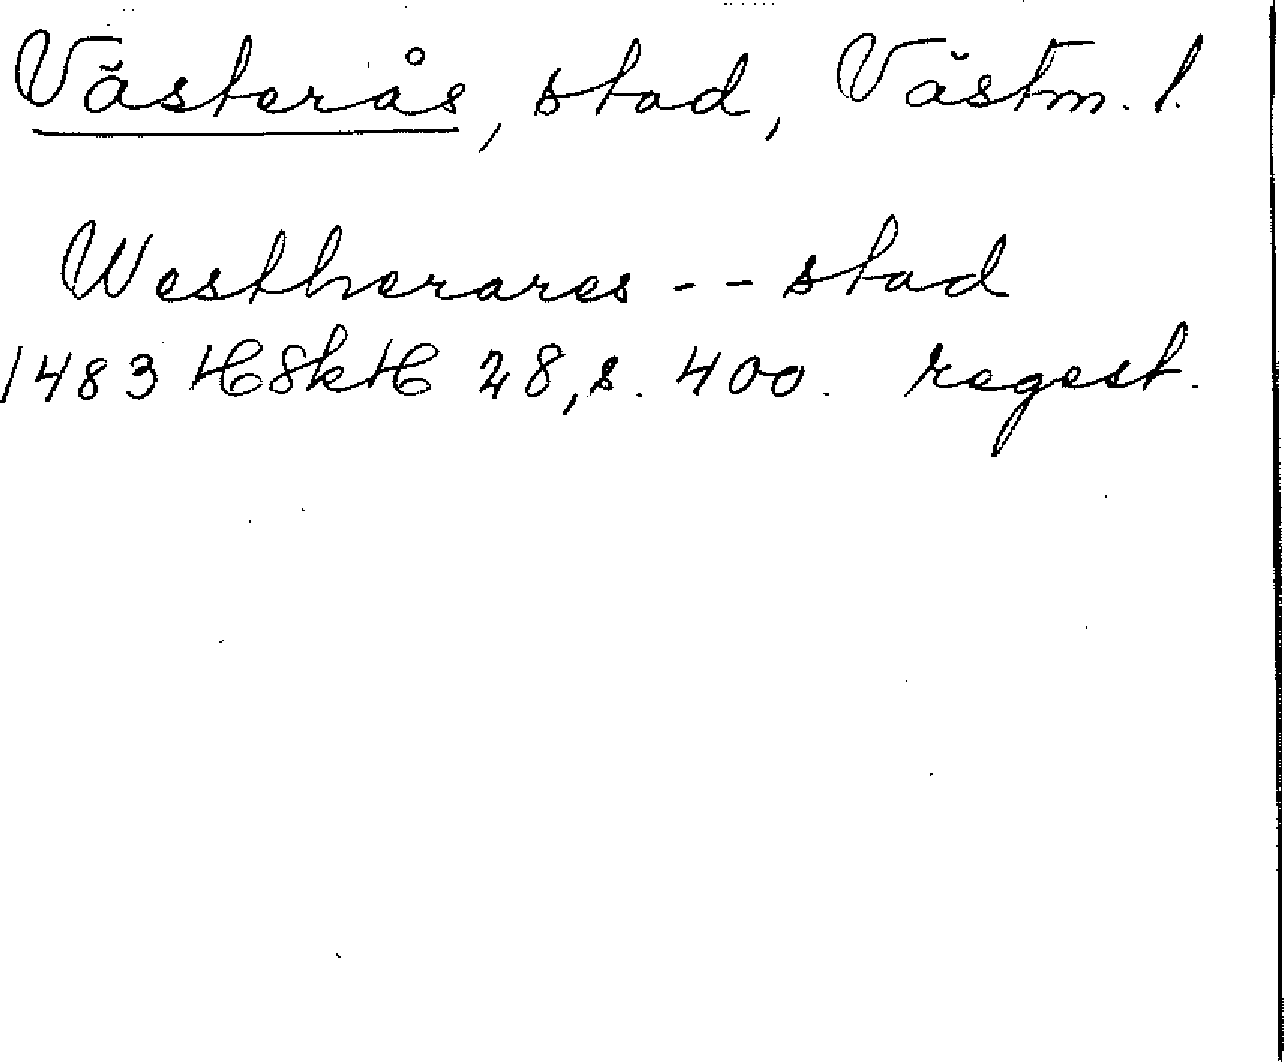 Västerås, stad, Västm. l.
Westherares -- stad
1483 HSkH 28, s. 400. regest.